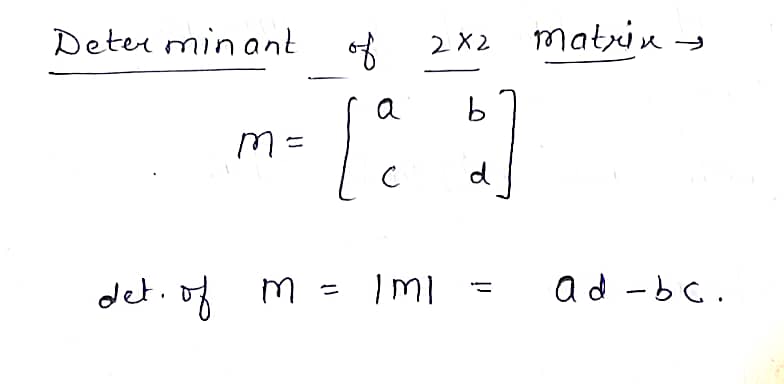 Determinant of 2x2 matrix →
m = [ a b
c d ]
det. of m = |m| = ad - bc.